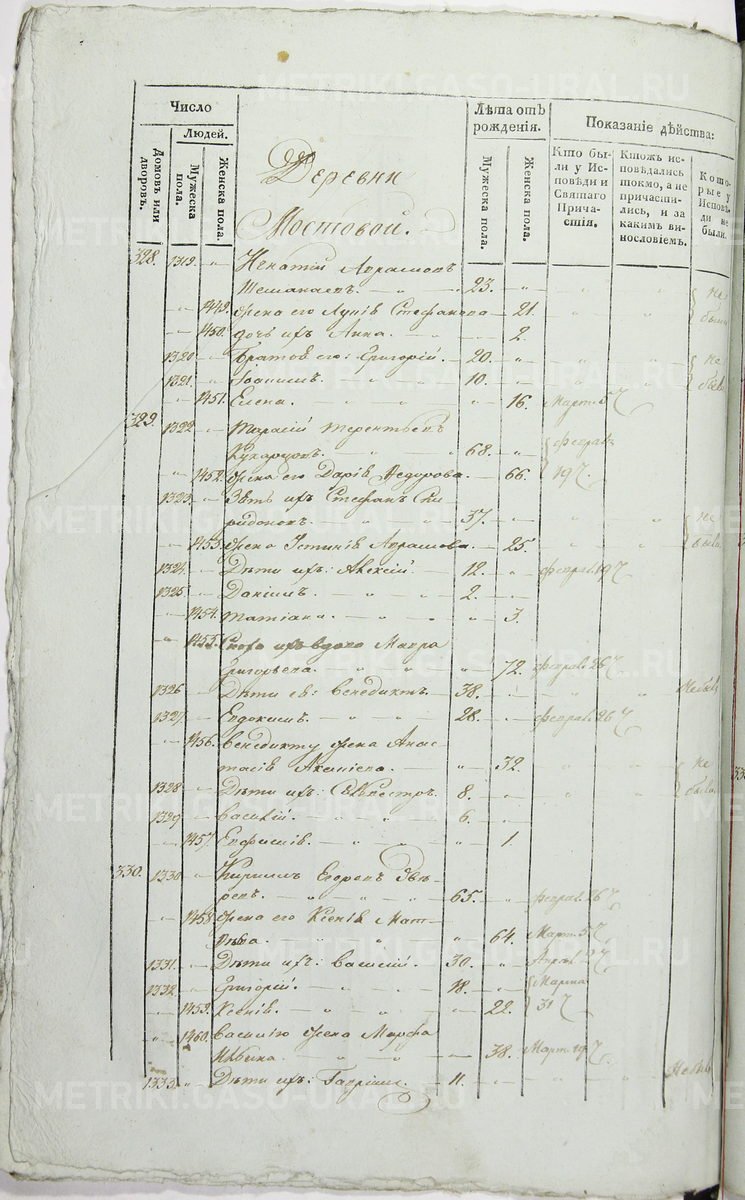 METRIKI.GASO-URAL.RU
Число
Домовъ или дворовъ.
Людей.
Мужеска пола.
Женска пола.
Деревни
Мостовой.
Лѣта отъ рожденія.
Мужеска пола.
Женска пола.
Показаніе дѣйства:
Кто были у Исповѣди и Святаго Причастія.
Ктожъ исповѣдались токмо, а не причастились, и за какимъ винословіемъ.
Которые у Исповѣди не были.
328. 1319. Аврамовъ
23. не
1449. жена его Стефанова 21. были
1450. дочь ихъ Анна. 2.
1320 Братья его: Григорій. 20. не
1321. Іоакимъ. 10. были
1451. Елена. 16. Март. 5
329. 1322 Терентьевъ
68. Феврал
1452. жена его Дарія Федорова. 66. 19
1323. Зять ихъ Стефанъ Спи
ридоновъ. 37. не
1453. жена Устинія Аврамова. 25. были
1324. Дѣти ихъ: Алексій. 12. феврал. 19
1325. Даніилъ. 2.
1454. Татіана. 3.
1455. Сноха ихъ вдова Мавра
Григорьева. 72. феврал. 26
1326 Дѣти ея: Венедиктъ. 38. Не были
1327. Евдокимъ. 28. феврал. 26
1456. Венедикту жена Анас
тасія 32. не
1328 Дѣти ихъ: Силвестръ. 8. были
1329 Василій. 6.
1457. Евфимія. 1.
330. 1330 Кирилъ Егоровъ Звѣ
ревъ. 65. феврал. 26
1458. жена его Ксенія Мат
вѣева. 64. Март. 5
1331. Дѣти ихъ: Василій. 30. Апрѣл
1332 Григорій. 18. Марта
1459. Ксенія. 22. 31
1460. Василію жена Марфа
38. Март. 19
1333. Дѣти ихъ: Гавріилъ. 11. Не были